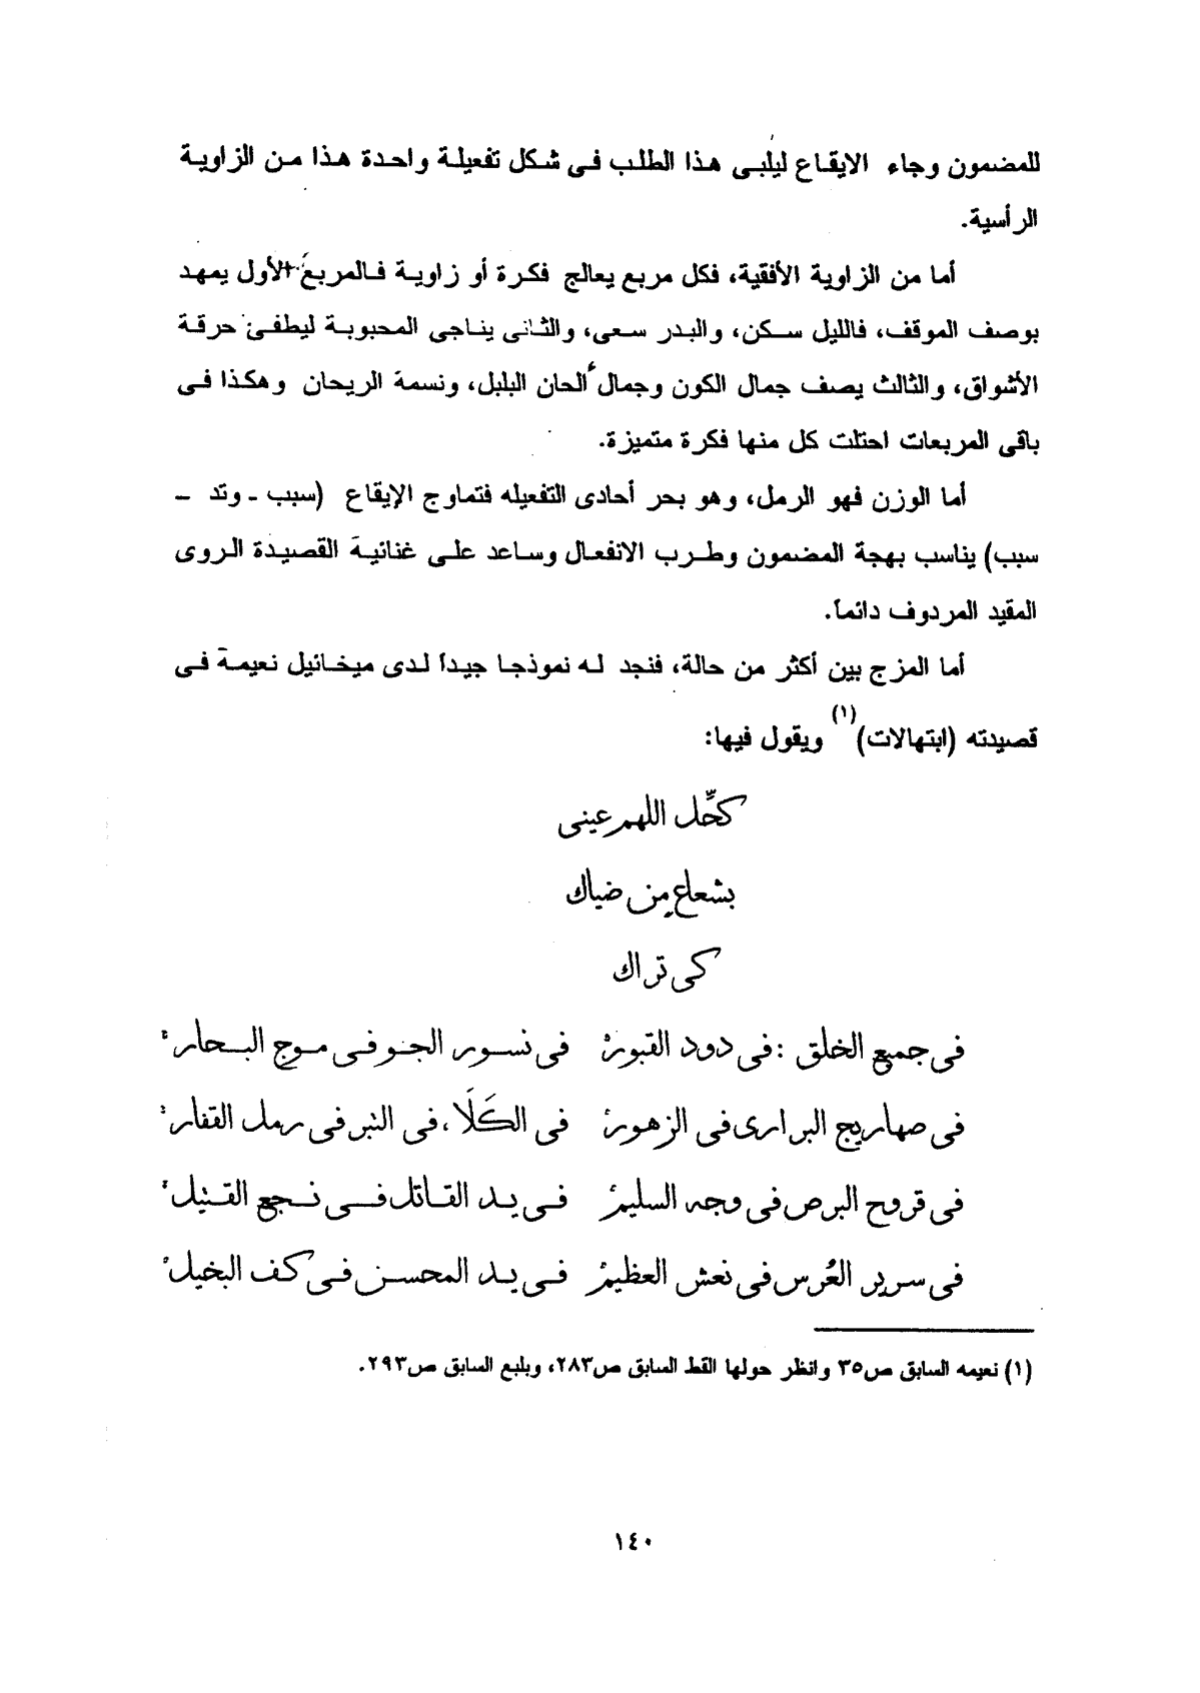 للمضمون وجاء الايقاع ليلبى هذا الطلب فى شكل تفعيلة واحدة هذا من الزاوية
الرأسية.
أما من الزاوية الأفقية، فكل مربع يعالج فكرة أو زاوية فالمربع الأول يمهد
بوصف الموقف، فالليل سكن، والبدر سعى، والثانى يناجى المحبوبة ليطفئ حرقة
الأشواق، والثالث يصف جمال الكون وجمال ألحان البلبل، ونسمة الريحان وهكذا فى
باقى المربعات احتلت كل منها فكرة متميزة.
أما الوزن فهو الرمل، وهو بحر أحادى التفعيله فتماوج الإيقاع (سبب - وتد –
سبب) يناسب بهجة المضمون وطرب الانفعال وساعد على غنائية القصيدة الروى
المقيد المردوف دائماً.
أما المزج بين أكثر من حالة، فنجد له نموذجا جيداً لدى ميخائيل نعيمة فى
قصيدته (ابتهالات)(١) ويقول فيها:
كحِّل اللهم عينى
بشعاع من ضياك
كى تراك
فى جميع الخلق : فى دود القبورْ فى نسور الجو فى موج البحارْ
فى صهاريج البرارى فى الزهورْ فى الكَلَا، فى التبر فى رمل القفارْ
فى قروح البرص فى وجه السليمْ فى يد القاتل فى نجع القتيلْ
فى سرير العُرس فى نعش العظيمْ فى يد المحسن فى كف البخيلْ
(١) نعيمه السابق ص٣٥ وانظر حولها القط السابق ص٢٨٣، وبلبع السابق ص٢٩٣.
١٤٠